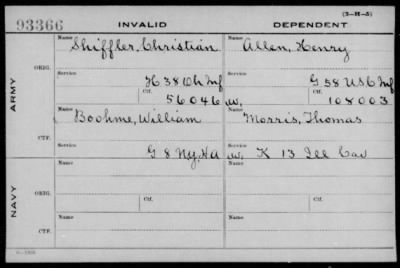 (3-H-5)
93366 INVALID DEPENDENT
Name Shiffler, Christian Name Allen, Henry
ORIG.
Service H 38 Oh Inf Service G 58 USC Inf
Ctf. 56046 W, Ctf. 108003
ARMY
Name Boohme, William Name Morris, Thomas
CTF.
Service G 8 Ny, Ha Service W, K 13 Ill Cav
Name Name
ORIG.
Service Ctf. Service Ctf.
NAVY
Name Name
CTF.